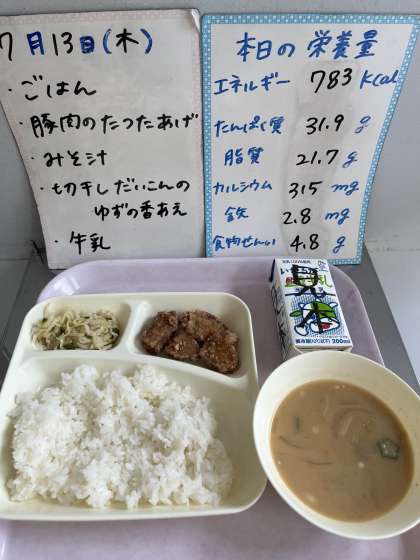 7月13日(木)
・ごはん
・豚肉のたつたあげ
・みそ汁
・切干しだいこんの
ゆずの香あえ
・牛乳
本日の栄養量
エネルギー 783 Kcal
たんぱく質 31.9 g
脂質 21.7 g
カルシウム 315 mg
鉄 2.8 mg
食物せんい 4.8 g
見本
200ml